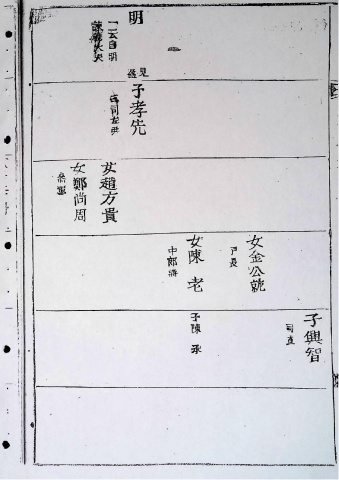 明
一云自明
諫議大夫
子孝先
左尹
女趙方貴
女鄭尚周
女金公就
戶長
女陳老
中郎將
子興智
司直
子陳